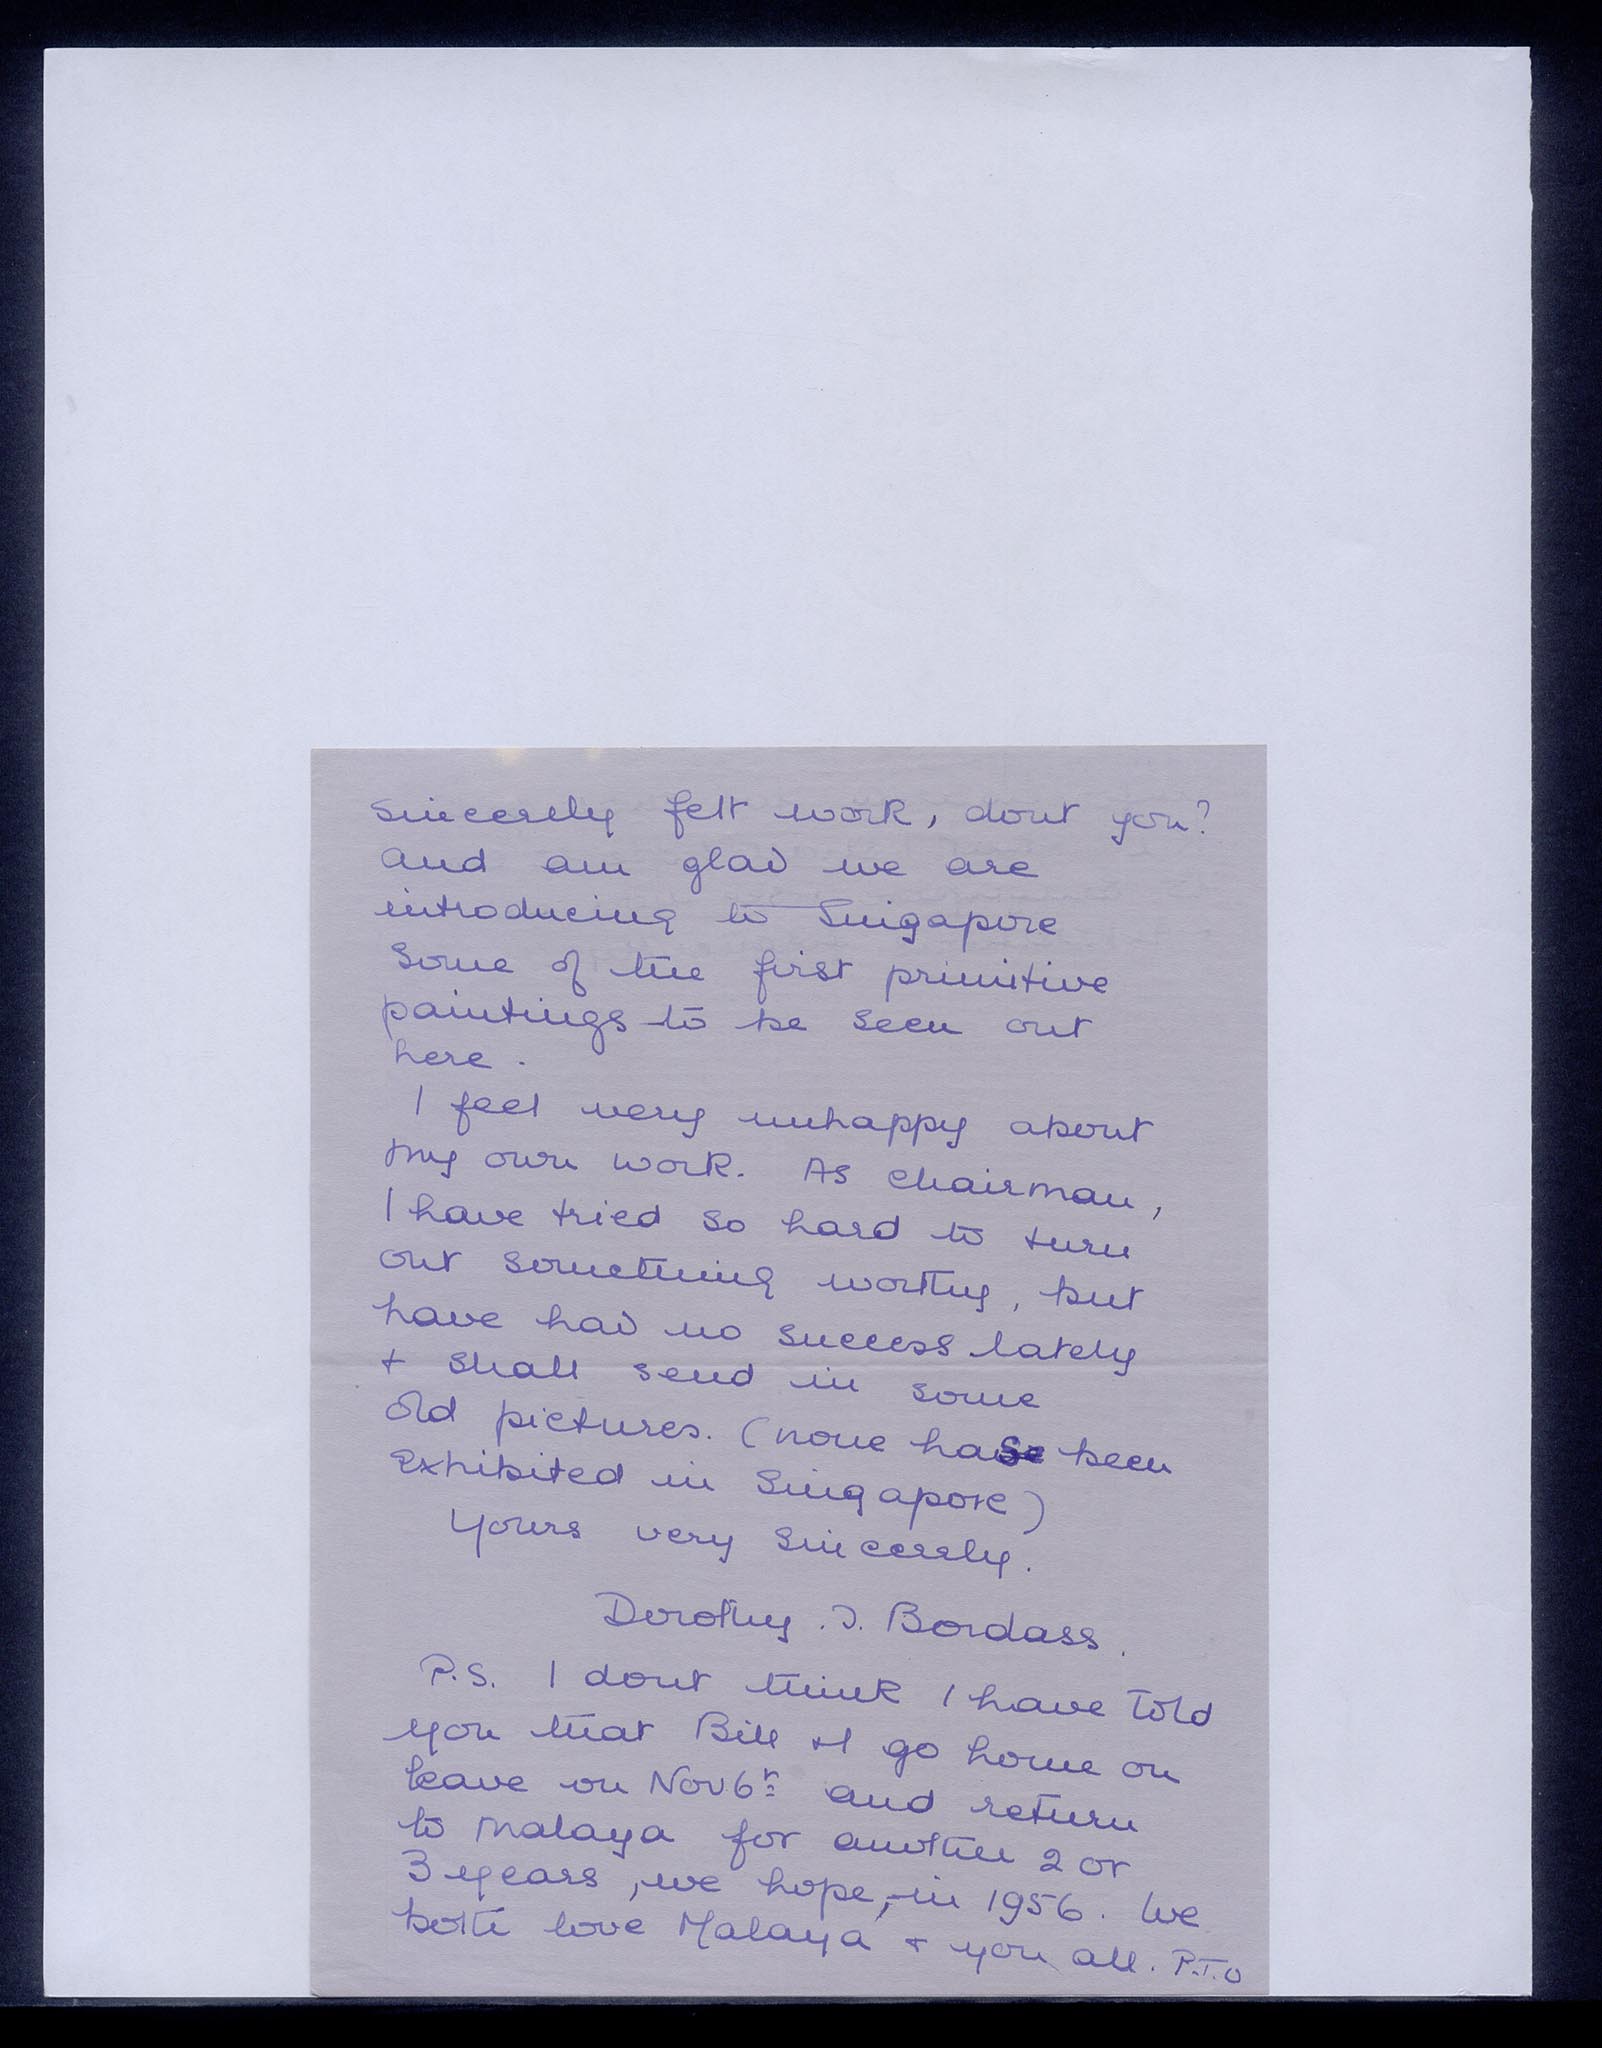 sincerely felt work, dont you?
and am glad we are
introducing to Singapore
some of the first primitive
paintings to be seen out
here.
I feel very unhappy about
my own work. As chairman,
I have tried so hard to turn
out something worthy, but
have had no success lately
+ shall send in some
old pictures. (none has been
exhibited in Singapore)
Yours very sincerely.
Dorothy. J. Bordass.
P.S. I dont think I have told
you that Bill + I go home on
leave on Nov 6th and return
to Malaya for another 2 or
3 years, we hope, in 1956. We
both love Malaya + you all. P.T.O